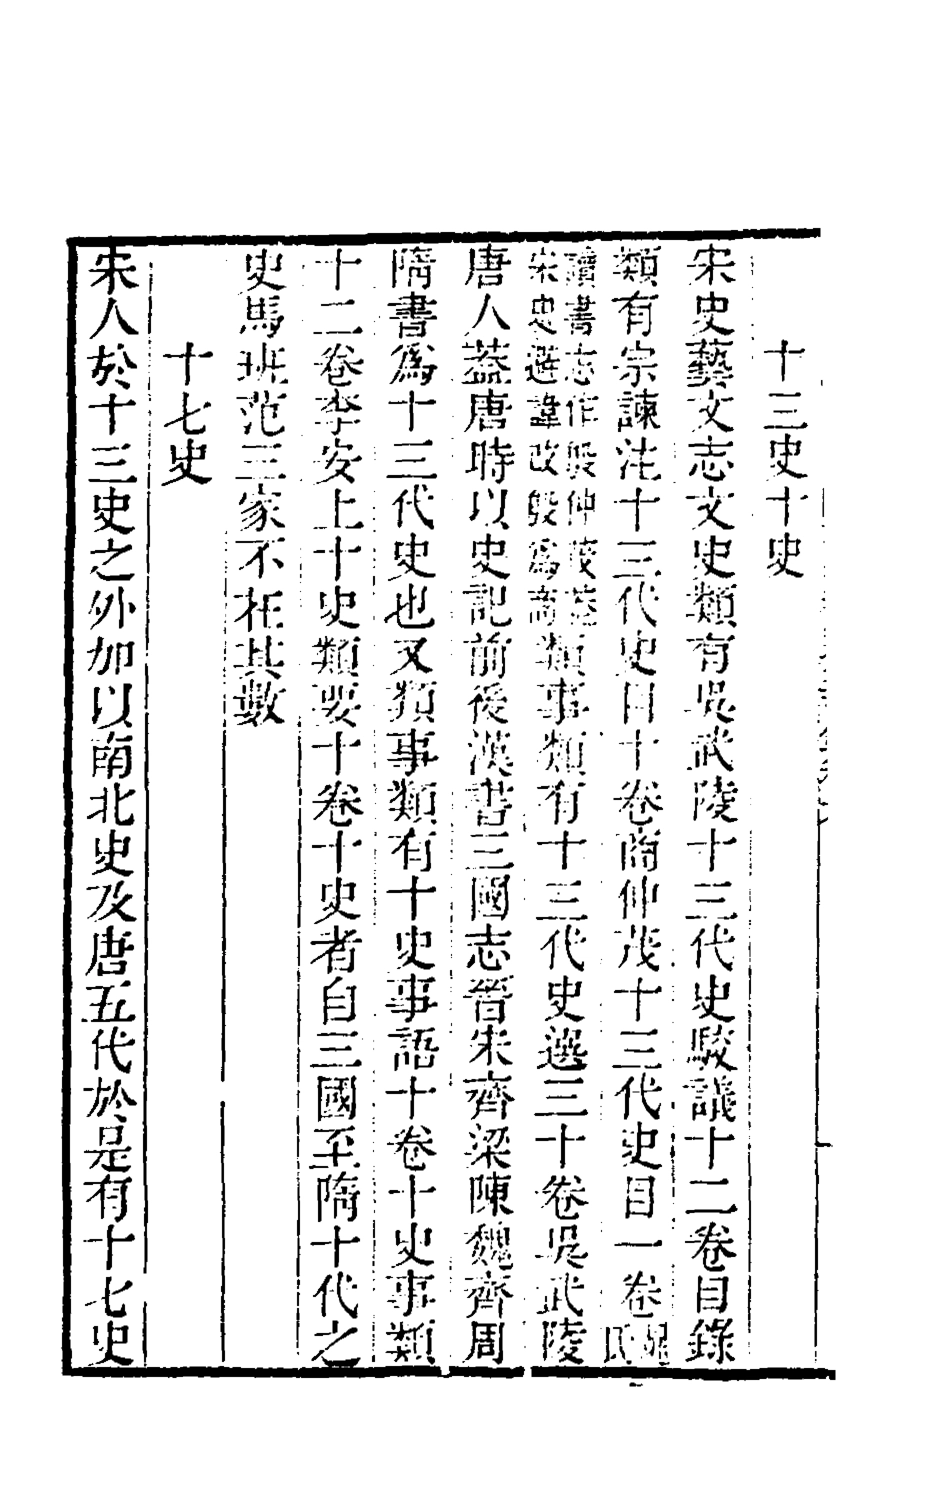 十三史十史
宋史藝文志文史類有吳武陵十三代史駮議十二卷目錄
類有宗諫注十三代史目十卷商仲茂十三代史目一卷晁氏
讀書志作殷仲茂蓋
宋史避諱改殷爲商
類事類有十三代史選三十卷吳武陵
唐人葢唐時以史記前後漢書三國志晉宋齊梁陳魏齊周
隋書爲十三代史也又類事類有十史事語十卷十史事類
十二卷李安上十史類要十卷十史者自三國至隋十代之
史馬班范三家不在其數
十七史
宋人於十三史之外加以南北史及唐五代於是有十七史